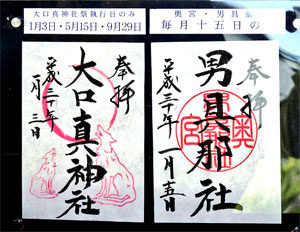 大口真神社祭執行日のみ
1月3日・5月15日・9月29日
奉拝
大口真神社
平成三十年
一月三日
奥宮・男具那
毎月十五日の
奉拝
男具那社
奥宮
平成三十年
一月十五日